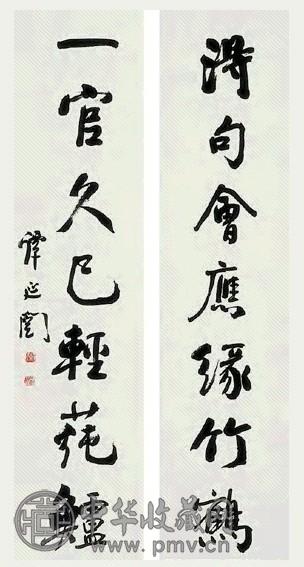 得句會應緣竹鶴
一官久已輕蒓鱸
譚延闓
中华收藏网
www.pmv.cn